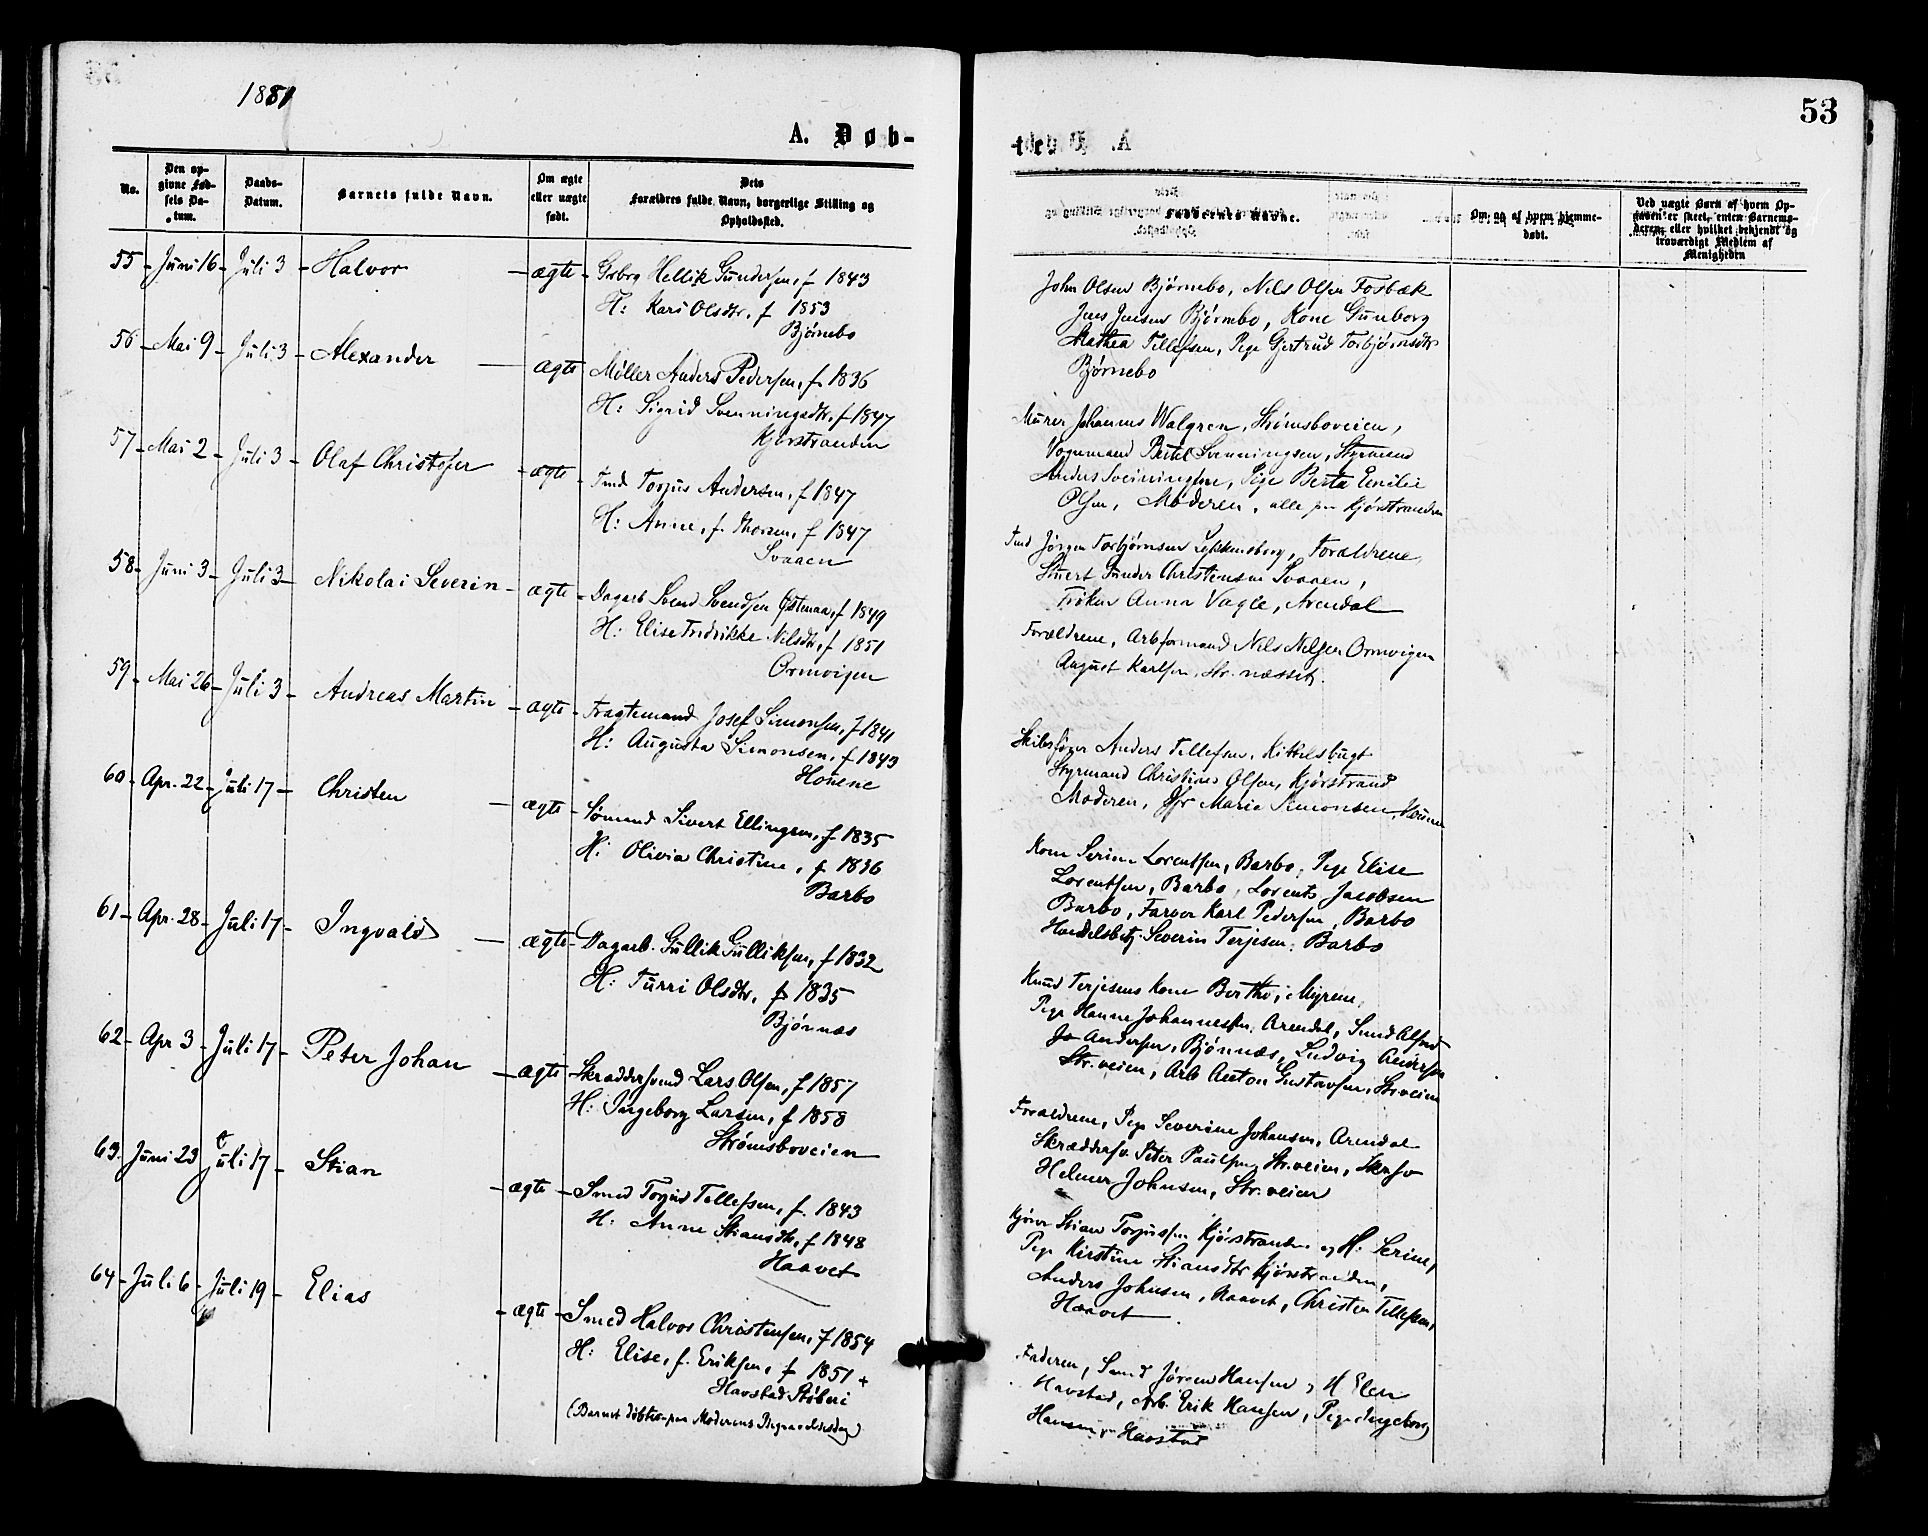 1881
53
A. Døb-
No.
Den op-
givne Fød-
sels Da-
tum.
Daabs-
Datum.
Barnets fulde Navn.
Om ægte
eller uægte
født.
Dets
Forældres fulde Navn, borgerlige Stilling og
Opholdssted.
Faddernes Navne.
Om og af hvem hjemme-
døbt.
Ved uægte Børn af hvem Op-
gaven er skeet, enten Barnemo-
deren, eller hvilket bekjendt og
troværdigt Medlem af
Menigheden
55 Juni 16 Juli 3 Halvor ægte Grbrg Hellik Gundersen, f 1843
H: Kari Olsdtr. f 1853
Bjørnebo
John Olsen Bjørnebo, Nels Olsen Fosbæk
Jens Jensen Bjørnebo, Kone Gunborg
Mathea Tellefsen, Pige Gjertrud Torbjørnsdtr
Bjørnebo
56 Mai 9 Juli 3 Alexander ægte Møller Anders Pedersen, f. 1836
H: Sigrid Svenningsdtr. f 1847
Kjørstranden
Murer Johannes Walgren, Strømsboveien,
Vognmand Bertel Svenningsen, Styrmand
Anders Svenningsen, Pige Berta Emilie
Olsen, Moderen, alle paa Kjørstranden
57 Mai 2 Juli 3 Olaf Christofer ægte Tmd Torjus Andersen, f 1847
H: Anne, f. Thorsen, f 1847
Svaaen
Tmd Jørgen Torbjørnsen, Forældrene,
Christensen Svaaen,
Frøken Anna Vagle, Arendal
58 Juni 3 Juli 3 Nikolai Severin ægte Dagarb Svend Svendsen f 1849
H: Elise Fredrikke Nilsdtr, f 1851
Ormvigen
Forældrene, Arbformand Nels Nelsen Ormvigen
August Karlsen, Str. næsset.
59 Mai 26 Juli 3 Andreas Martin ægte Fragtemand Josef Simonsen, f 1841
H: Augusta Simonsen, f 1843
Houene
Skibsfører Anders Tellefsen, Kittelsbugt
Styrmand Christines Olsen, Kjørstrand
Moderen, Jfr Marie Simonsen, Houene
60 Apr. 22 Juli 17 Christen ægte Sømand Sivert Ellingsen, f 1835
H: Olivia Christine, f 1836
Barbo
Kone Serine Lorentsen, Barbo, Pige Elise
Lorentsen, Barbo, Lorents Jacobsen
Barbo, Farver Karl Pedersen, Barbo
Handelsbetj. Severin Terjesen, Barbo
61 Apr. 28 Juli 17 Ingvald ægte Dagarb. Gullik Gulliksen, f 1832
H: Turri Olsdtr, f 1835
Bjønnæs
Knud Terjesens Kone Berthe, Myrene,
Pige Hanne Johannessen, Arendal, Smed Alfred
Jo Andersen, Bjønnæs, Ludvig Andersen
Str. veien, Arb Anton Gustavsen, Str.veien
62 Apr 3 Juli 17 Peter Johan ægte Skræddersvend Lars Olsen, f 1857
H: Ingeborg Larsen, f 1858
Strømsboveien
Forældrene, Pige Severine Johansen, Arendal
Skræddersv Peter Paulsen, Str.veien, Skrsv
Helmer Johnsen, Str. veien
63 Juni 23 Juli 17 Stian ægte Smed Torjus Tellefsen, f. 1843
H: Anne Stiansdtr, f 1848
Haavet
Kjører Stian Torjussen Kjørstranden og H: Serine,
Pige Kirstine Stiansdtr Kjørstranden,
Anders Johnsen, Haavet, Christen Tellefsen,
Haavet
64 Juli 6 Juli 19 Elias ægte Smed Halvor Christensen, f 1854
H: Elise, f. Eriksen, f 1851 +
Havstad Støberi
(Barnet døbtes paa Moderens Begravelsesdag)
Faderen, Smed Jørgen Hansen og H Elen
Havstad, Arb. Erik Hansen, Pige Ingeborg
Hansen, Havstad